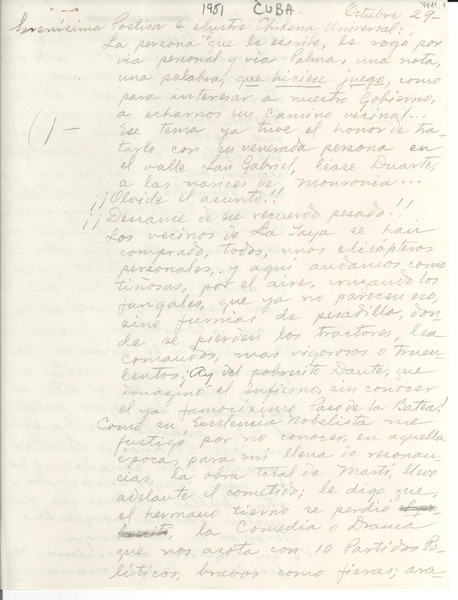 1951 CUBA Octubre 29-
Serenísima Poetisa e ilustre Chilena Universal:
La persona que le escribe, le rogó, por
vía personal y vía Palma, una nota,
una palabra, que hiciese juego, como
para interesar a nuestro Gobierno,
a echarnos un Camino vecinal...
(1-
Ese tema ya tuve el honor de tra-
tarlo con su venerada persona en
el valle San Gabriel, léase Duarte,
a las narices de Monrovia...
¡¡Olvide el asunto!!
¡¡Derrame de ese recuerdo pesado!!
Los vecinos de La Jaya se han
comprado, todos, unos elicópteros
personales, y aquí andamos como
tiñosas, por el aire, cruzando los
fangales, que ya no parecen eso,
sino furnias de pesadilla, don-
de se pierden los tractores, lea
comandos, mas vigorosos o truen-
lentos; ¡Ay del pobrecito Dante, que
imaginó el infierno, sin conocer
el ya famosísimo Paso de la Batea!
Como su Excelencia Nobelista me
fustigó por no conocer, en aquella
época, para mí llena de resonan-
cias, la obra total de Martí, llevo
adelante el cometido; le digo que,
el hermano tierno se perdió
la Comedia o Drama
que nos azota con 10 Partidos Po-
líticos, bravos como fieras; ara-